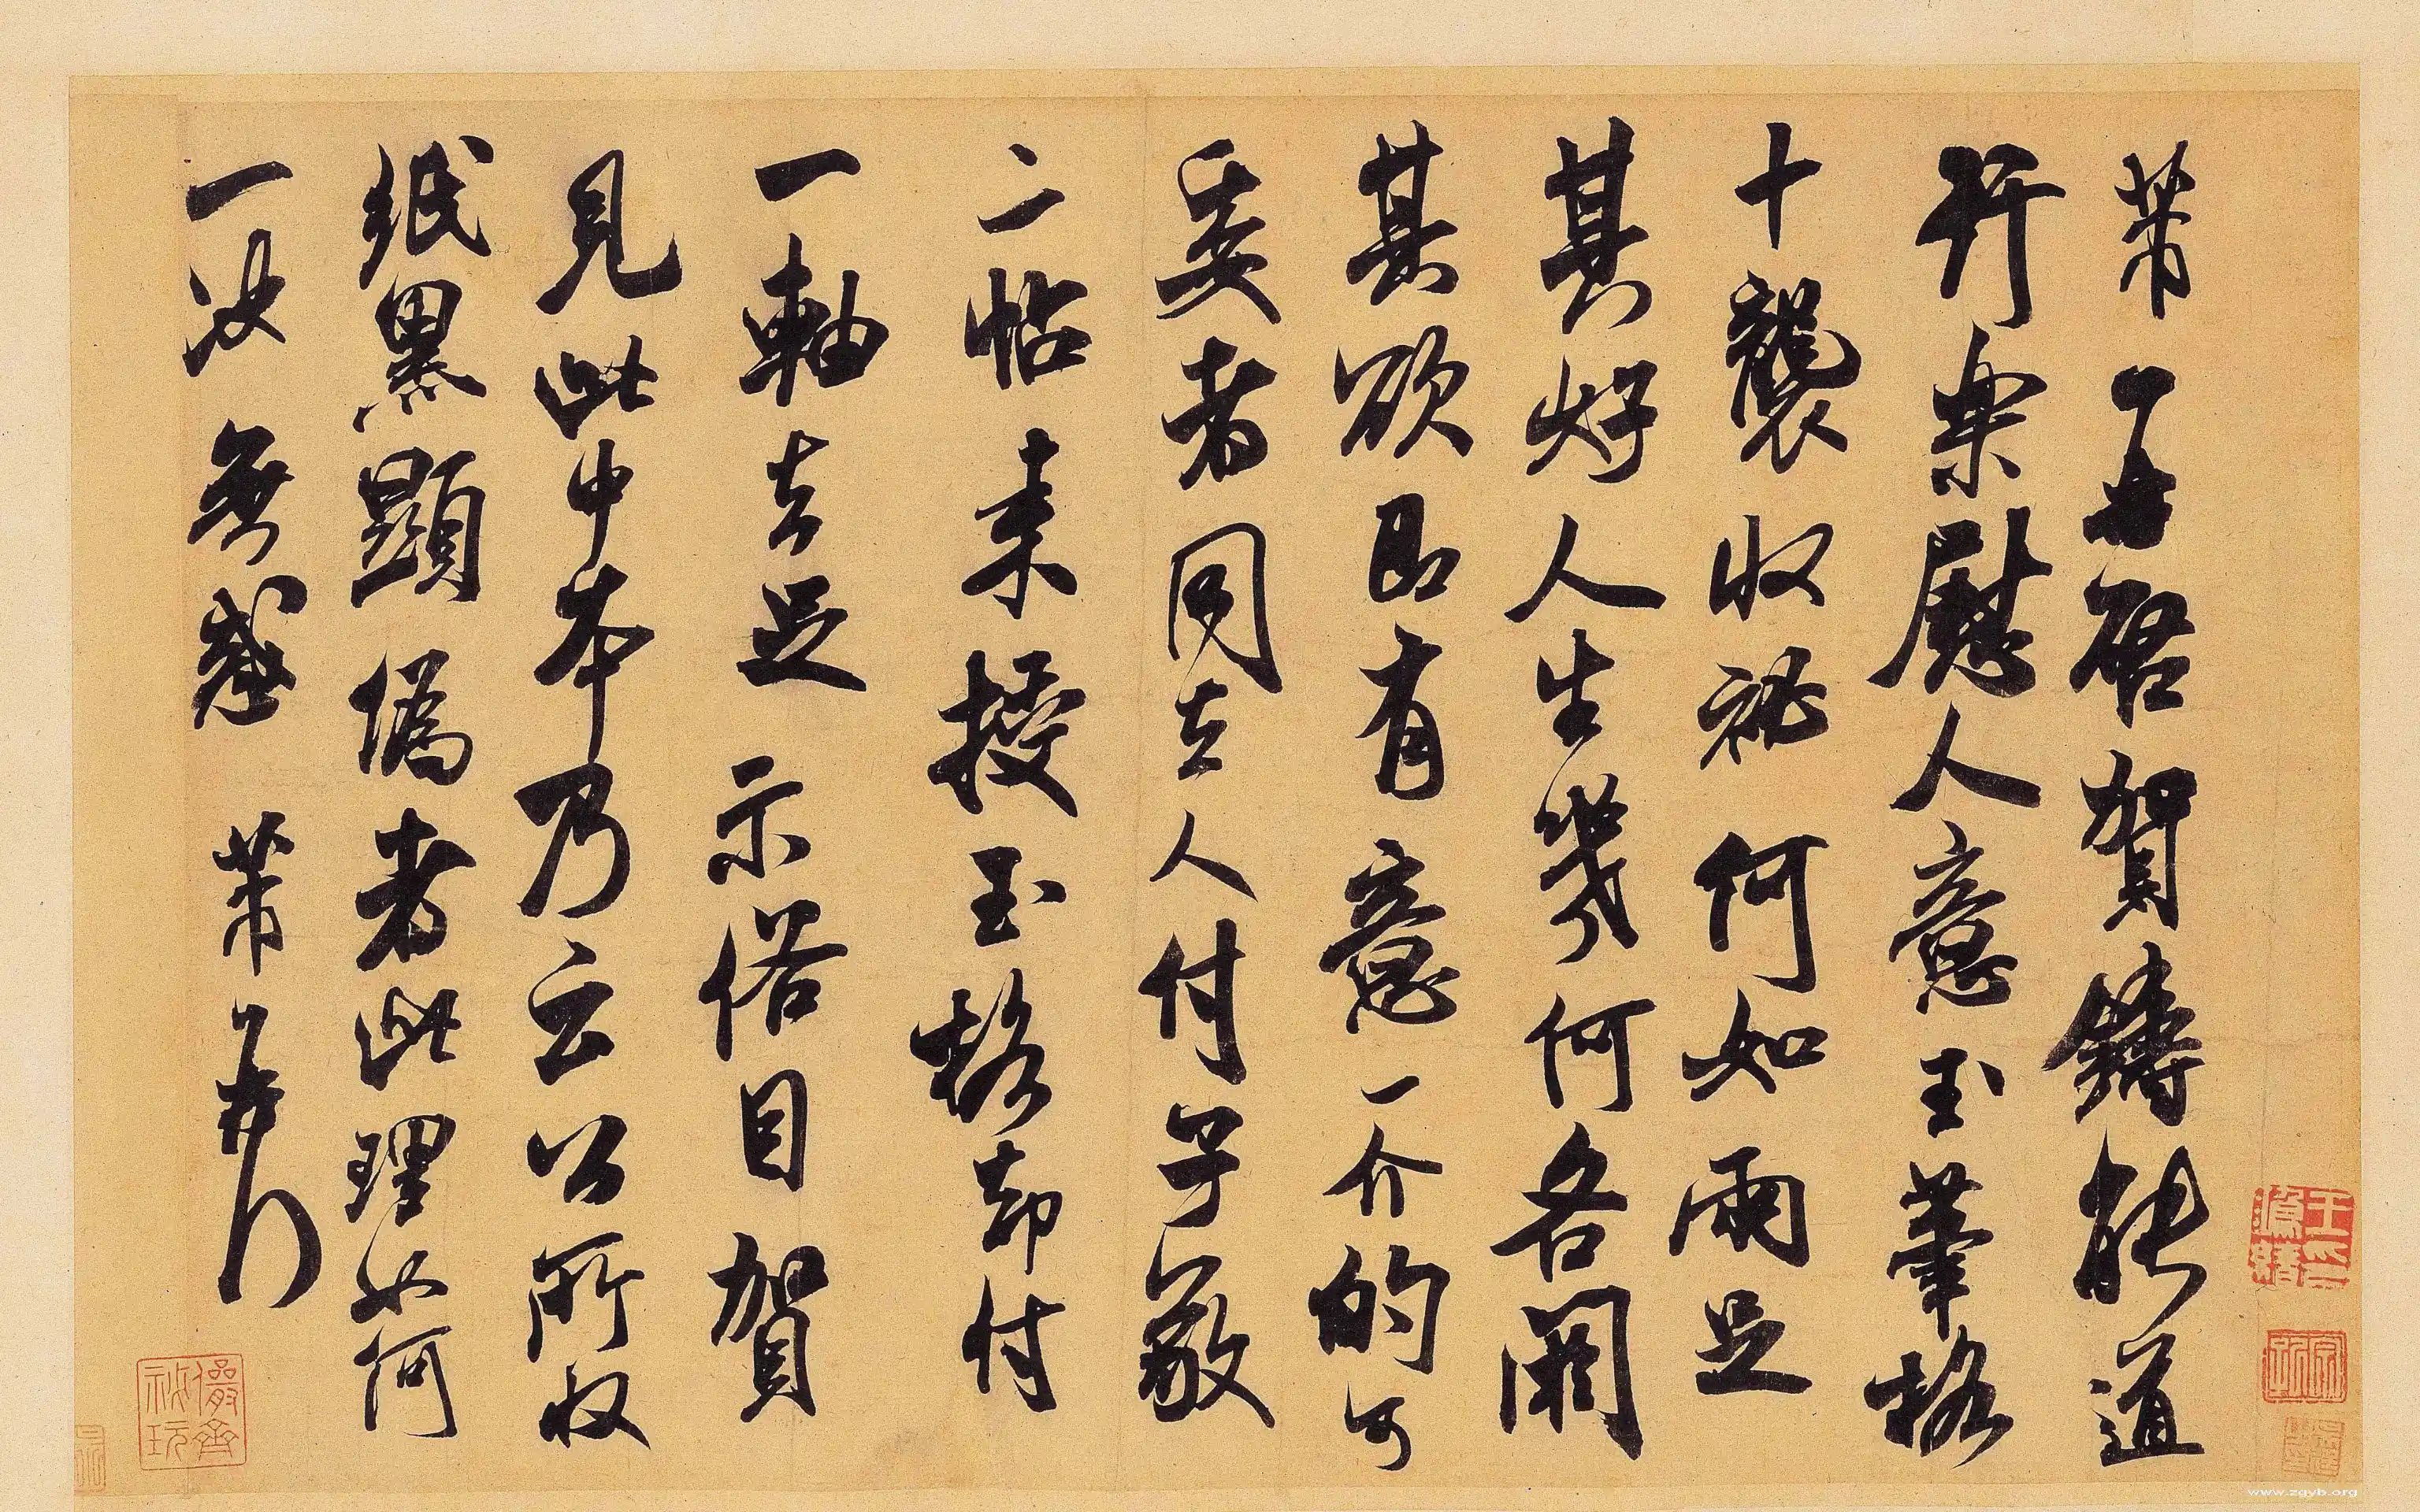 芾頓首再啓賀鑄能道
行樂慰人意玉筆格
十襲收秘何如兩足
其好人生幾何各閱
其欲即有意一介的可
委者同去人付子敬
二帖來授玉格却付
一軸去足示俗目賀
見此中本乃云公所收
紙黑顯僞者此理如何
一決無惑芾頓首
儼齋秘玩
www.zgyb.org